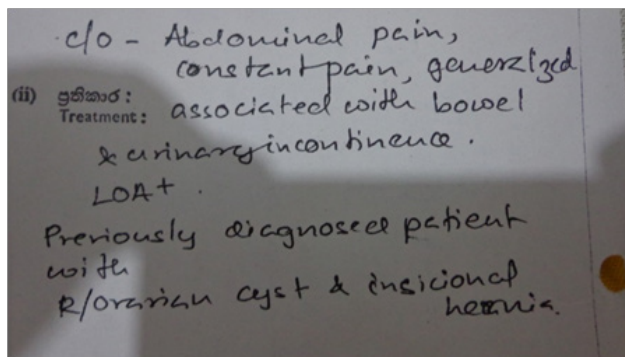 c/o - Abdominal pain,
constant pain, generalized
(ii) ප්‍රතිකාර :
Treatment: associated with bowel
& urinary incontinence.
LOA+.
Previously diagnosed patient
with
R/ovarian cyst & insicional
hernia.